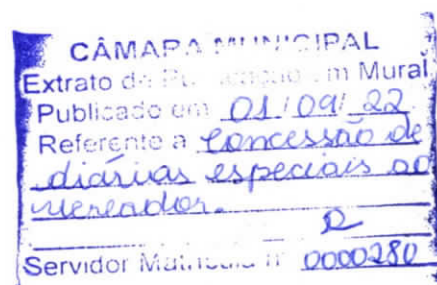 CÂMARA MUNICIPAL
Extrato de Publicação em Mural
Publicado em 01/09/22
Referente a Concessão de
diárias especiais ao
vereador.
Servidor Matrícula nº 0000280